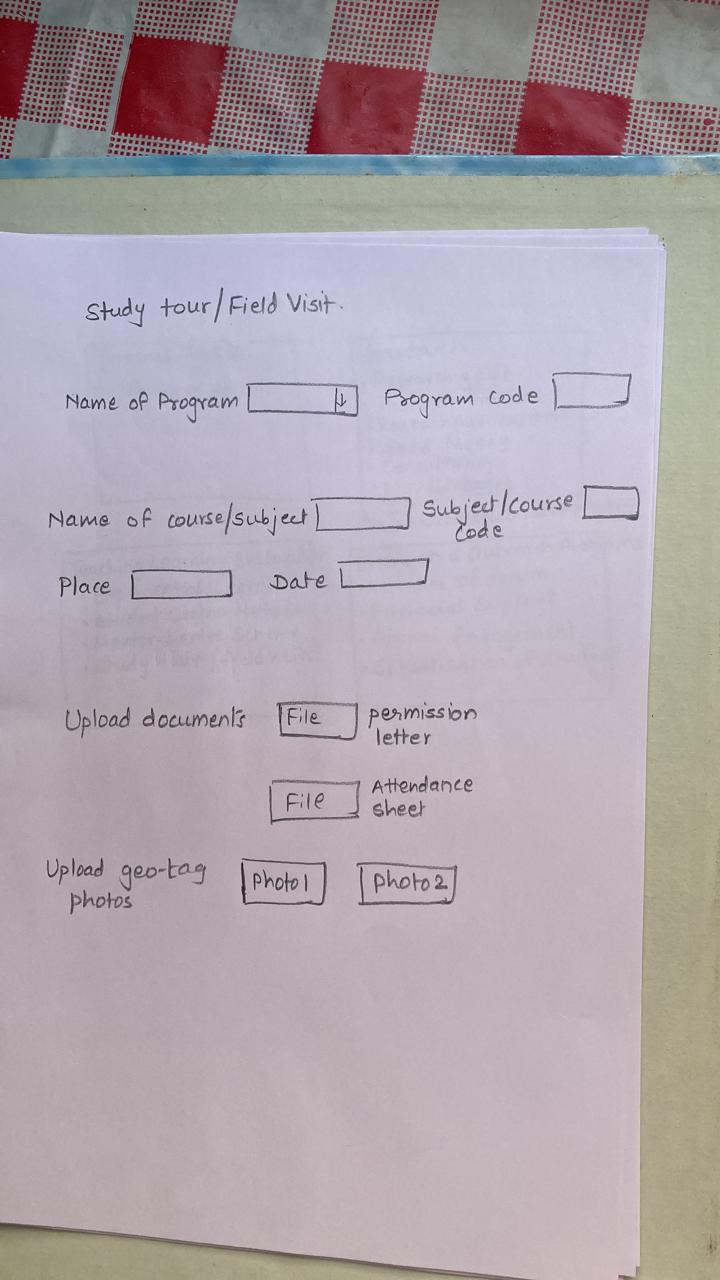 Study tour/Field Visit.
Name of Program
Program code
Name of course/subject
Subject/course
code
Place
Date
Upload documents
File
permission
letter
File
Attendance
sheet
Upload geo-tag
photos
Photo1
Photo2